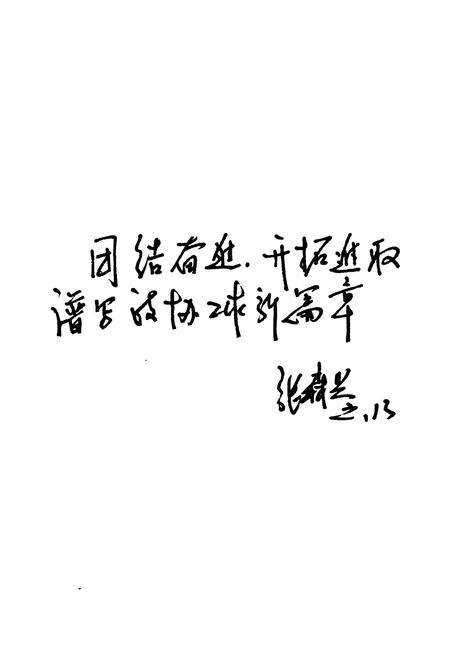 团结奋进.开拓进取
谱写政协工作新篇章
张森